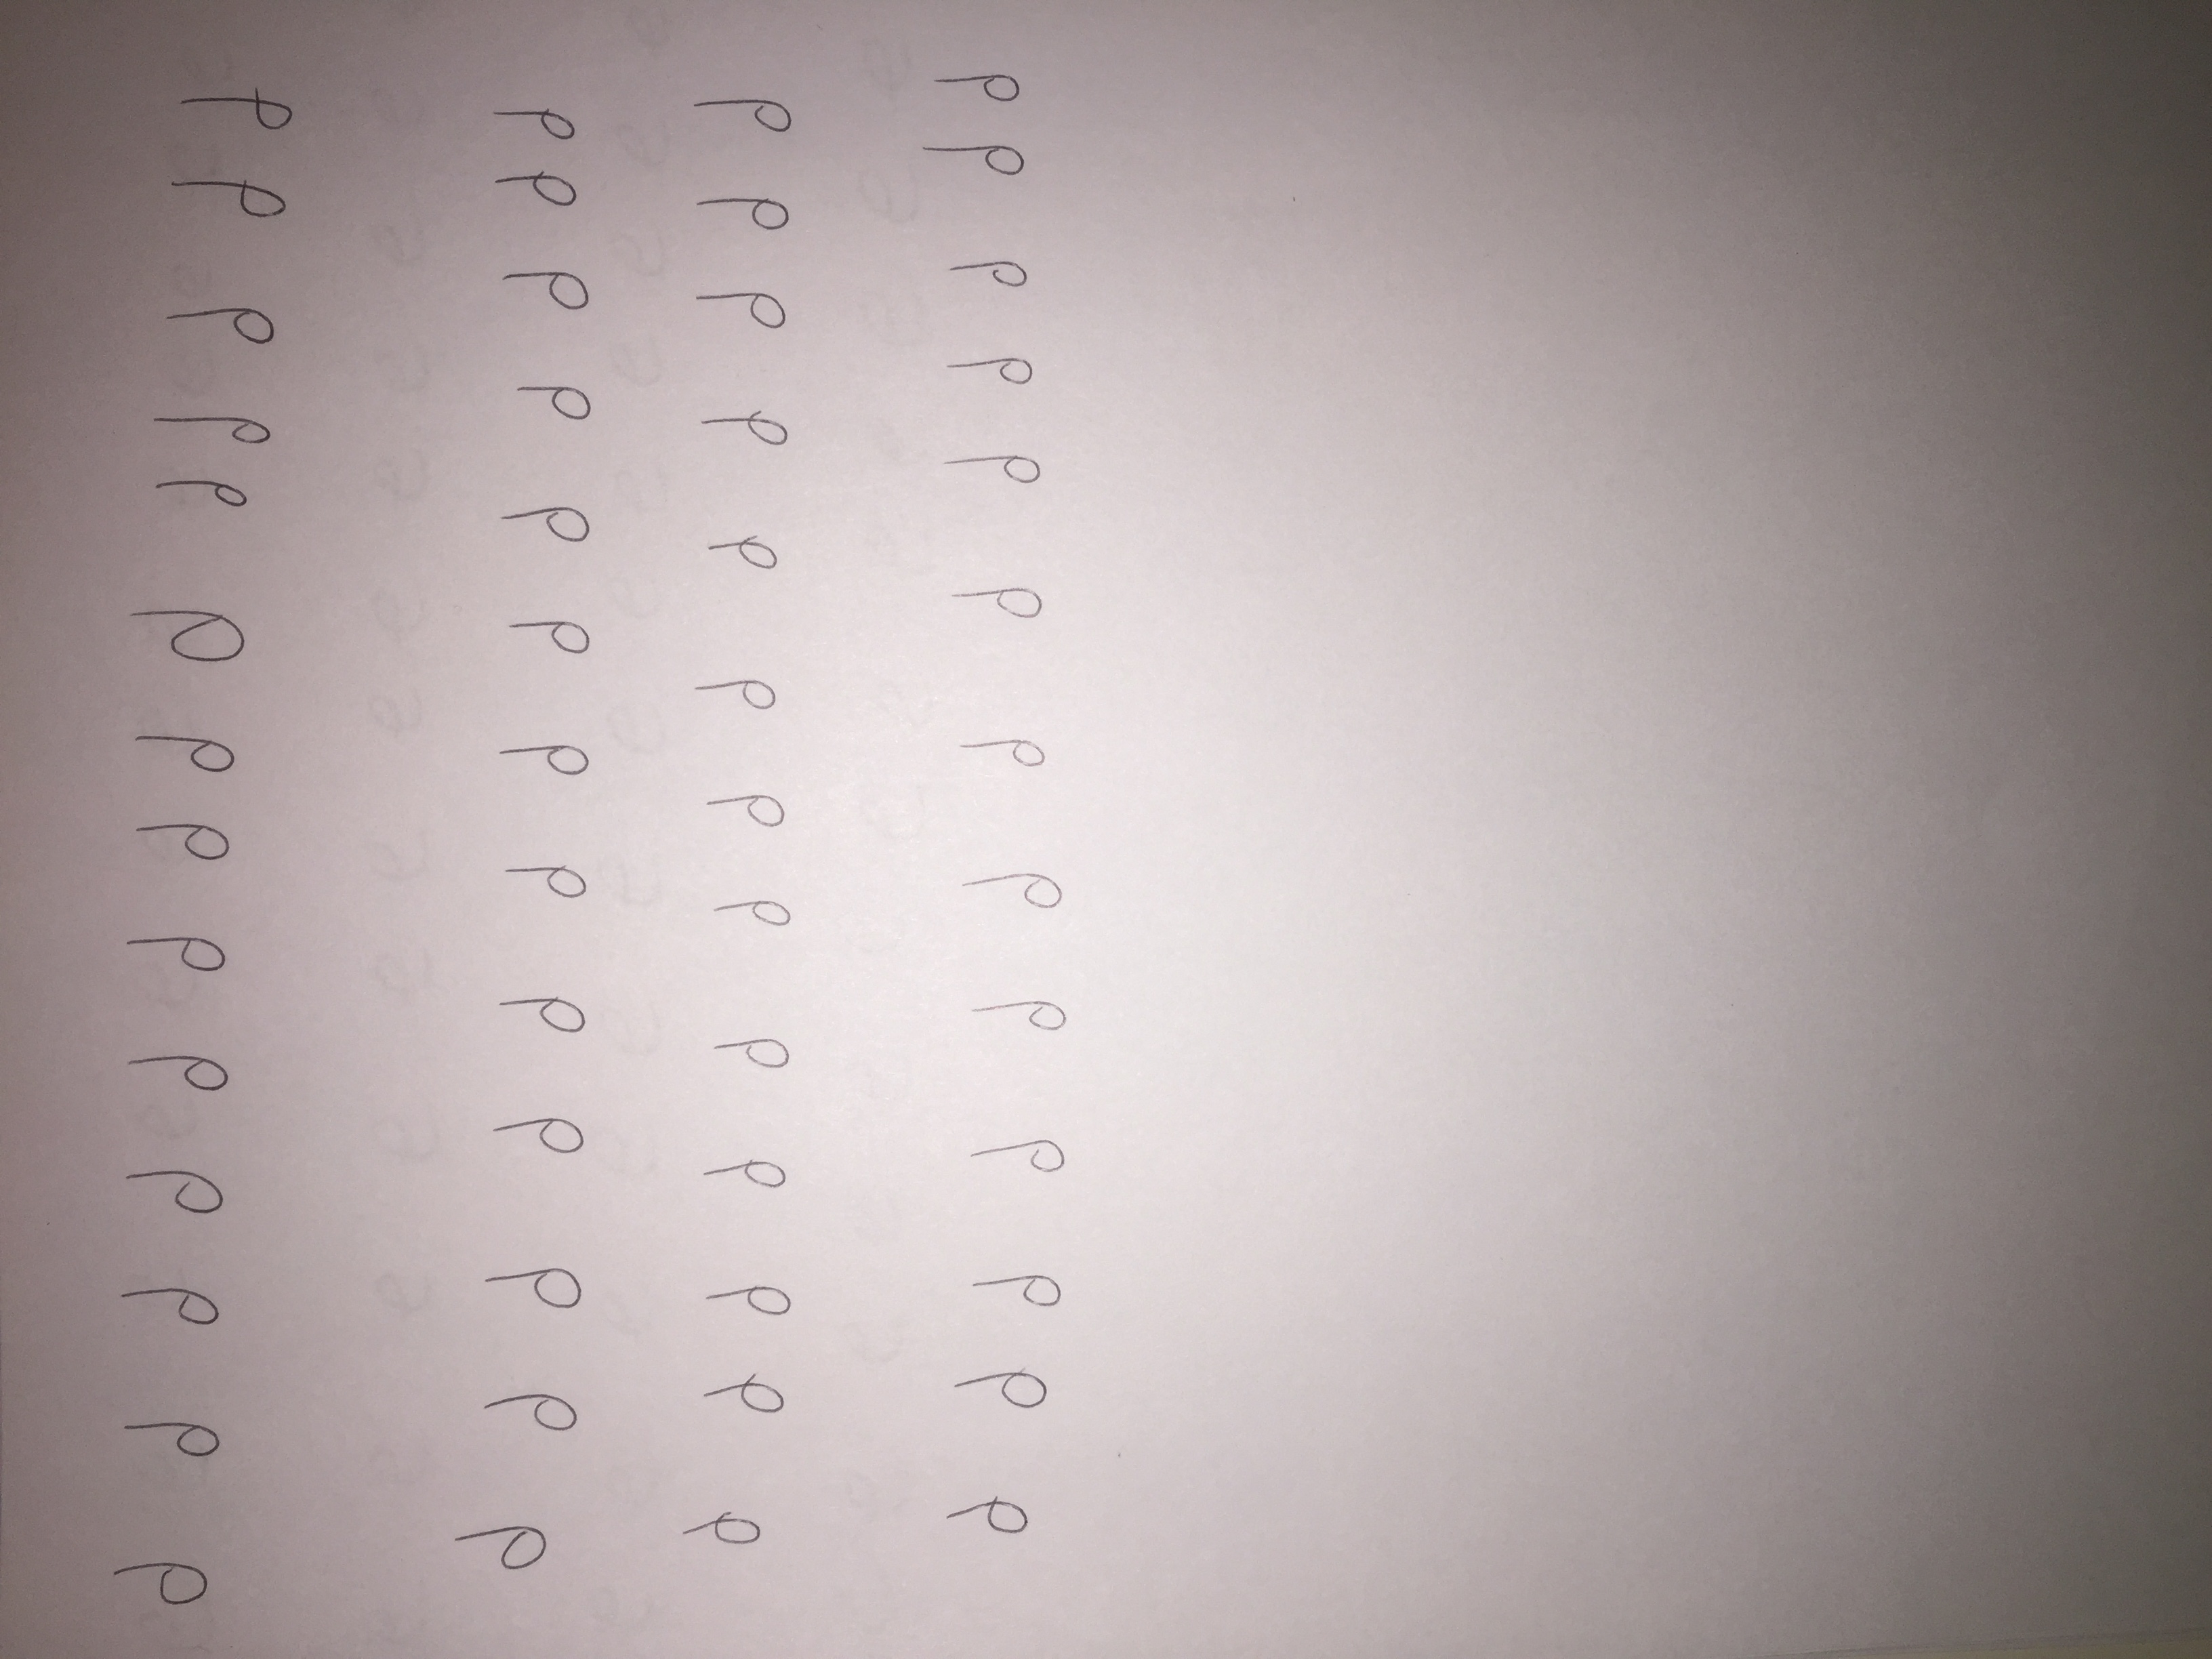 d d d d d d d d d d d d d d
d d d d d d d d d d d d d
d d d d d d d d d d d d d
d d d d d d d d d d d d d